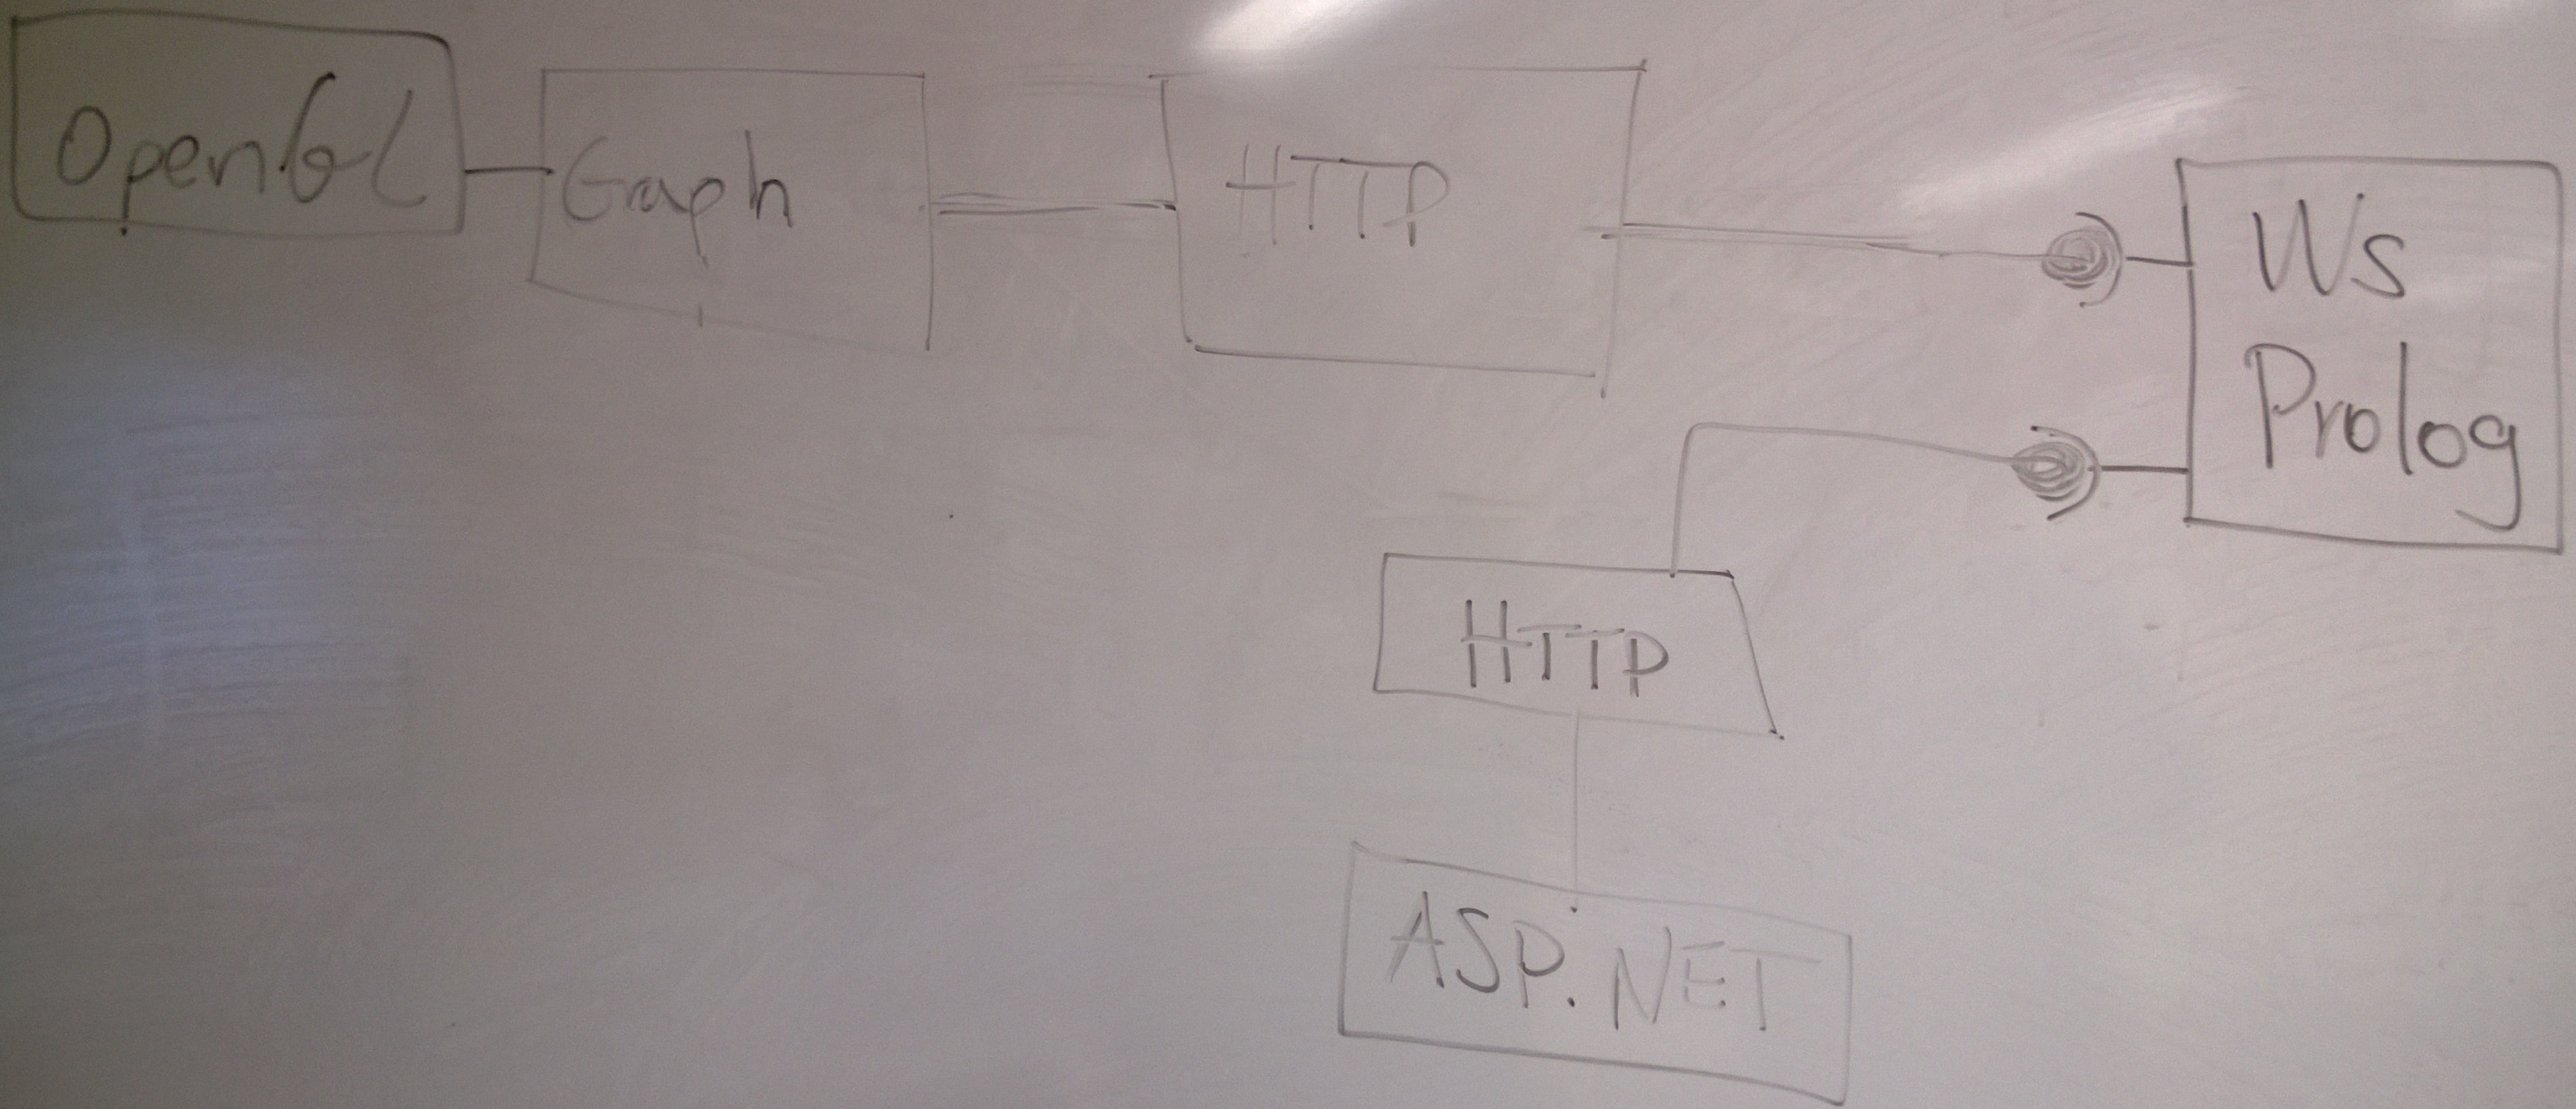 OpenGL
Graph
HTTP
Ws
Prolog
HTTP
ASP.NET